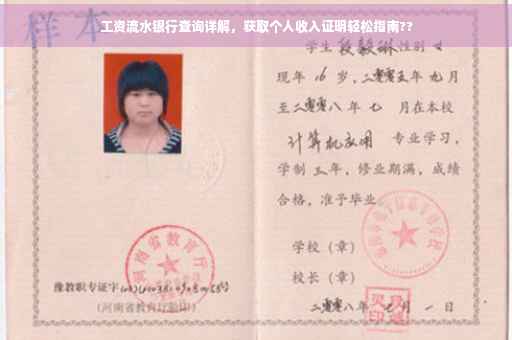 工资流水银行查询详解，获取个人收入证明轻松指南??
样本
学生段毅琳性别女
现年16岁，二零零五年九月
至二零零八年七月在本校
计算机应用专业学习，
学制三年，修业期满，成绩
合格，准予毕业。
学校（章）
校长（章）
二零零八年七月一日
河南省教育厅
豫教职专证字
（河南省教育厅验印）